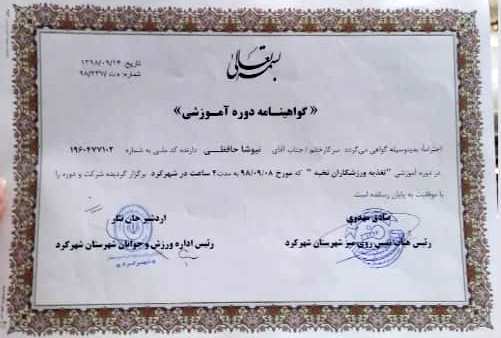 بسمه تعالی
تاریخ: ۱۳۹۸/۰۹/۱۴
شماره: ت ۹۸/۲۳۹۷
«گواهینامه دوره آموزشی»
احتراماً، بدینوسیله گواهی می‌گردد سرکارخانم / جناب آقای نیوشا حافظی دارنده کد ملی به شماره ۱۹۶۰۴۷۷۱۰۲
در دوره آموزشی "تغذیه ورزشکاران نخبه" که مورخ ۹۸/۰۹/۰۸ به مدت ۲ ساعت در شهرکرد، برگزار گردیده شرکت و دوره را
با موفقیت به پایان رسانده است.
صادق مهدوی
رئیس هیات تنیس روی میز شهرستان شهرکرد
اردشیر جان نثار
رئیس اداره ورزش و جوانان شهرستان شهرکرد